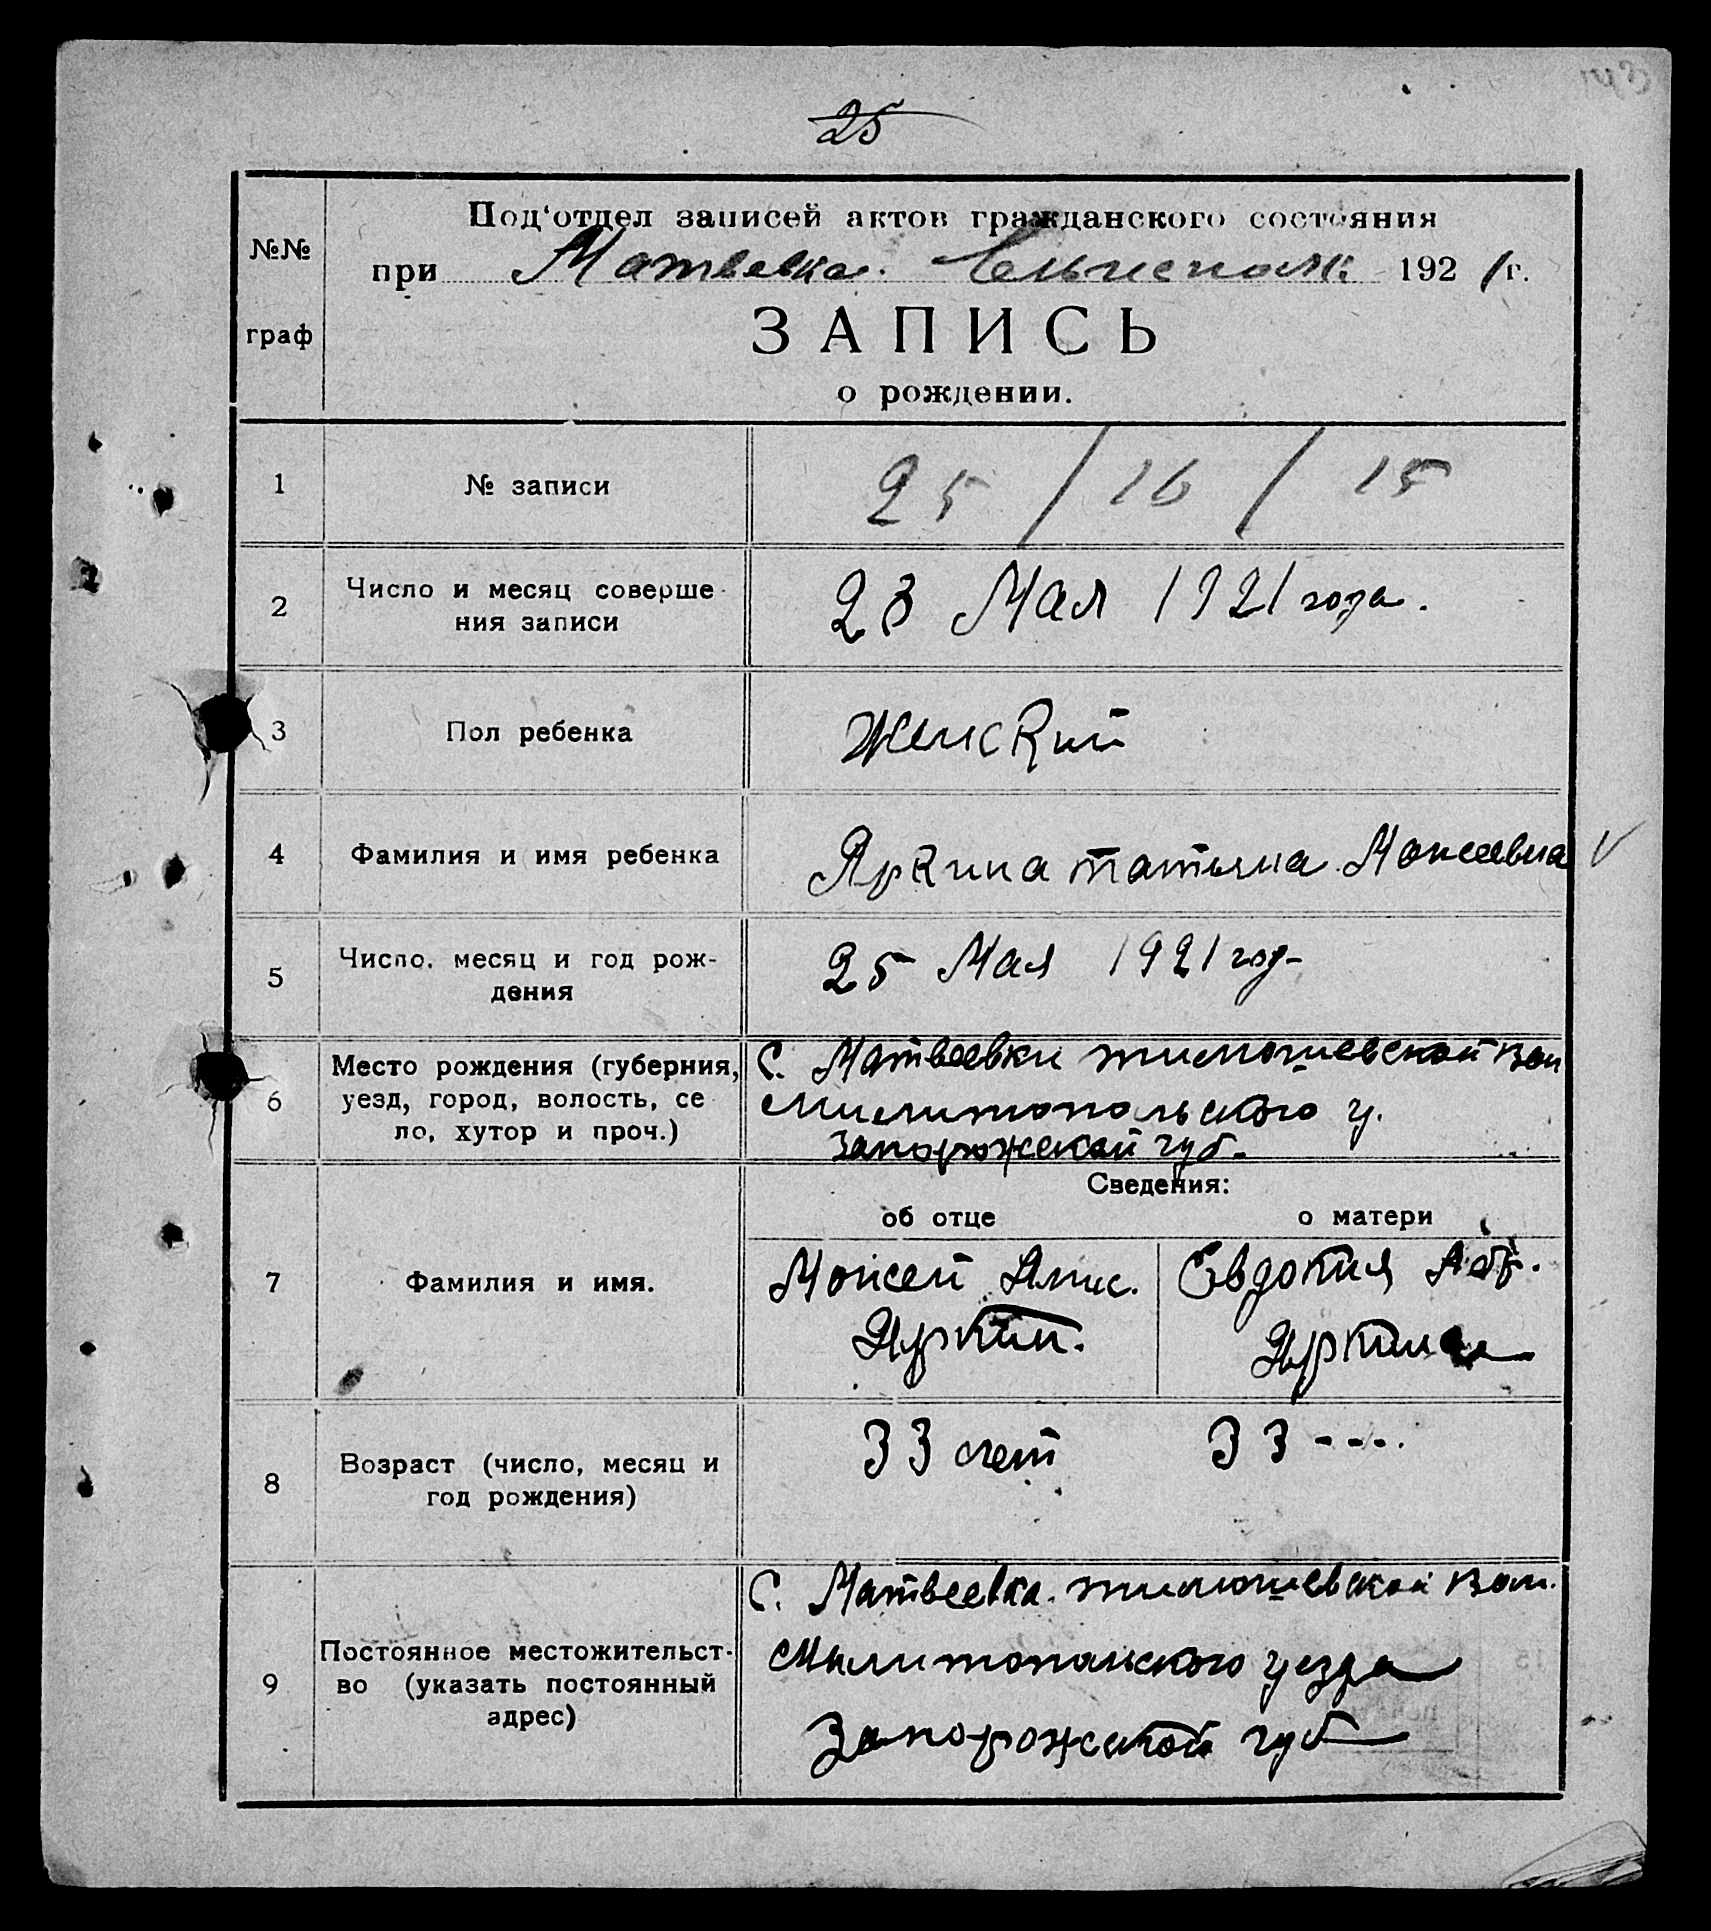 25
Под'отдел записей актов гражданского состояния
№№
при Матвевка. 192 1 г.
граф
ЗАПИСЬ
о рождении.
1 № записи 25 / 16 / 15
2 Число и месяц соверше-
ния записи 28 Мая 1921 года.
3 Пол ребенка Женский
4 Фамилия и имя ребенка Яркина татьяна Моисеевна V
5 Число, месяц и год рож-
дения 25 Мая 1921 год-
6 Место рождения (губерния,
уезд, город, волость, се
ло, хутор и проч.)
С. Матвеевки тимошевской вол
милитопольского у.
Запорожской губ.
Сведения:
об отце о матери
7 Фамилия и имя.
Моисей Яркин.
Евдокия Яркина
8 Возраст (число, месяц и
год рождения)
33 лет 33 - - - .
9 Постоянное местожительст-
во (указать постоянный
адрес)
С. Матвеевка. тимошевской вол.
Мылитопольского уезда
Запорожской губ